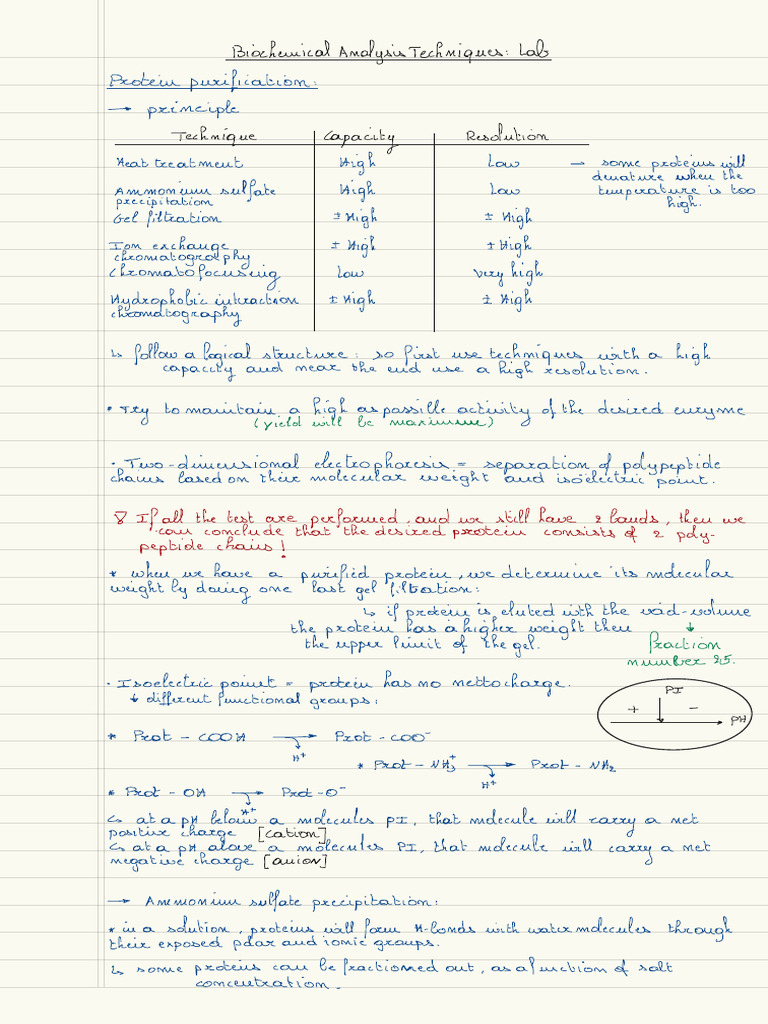 Biochemical Analysis Techniques: Lab
Protein purification:
→ principle
Technique Capacity Resolution
Heat treatment High Low → some proteins will
denature when the
temperature is too
high.
Ammonium sulfate High Low
precipitation
Gel filtration ± High ± High
Ion exchange ± High ± High
chromatography
Chromatofocusing Low very high
Hydrophobic interaction ± High ± High
chromatography
↳ follow a logical structure: so first use techniques with a high
capacity and near the end use a high resolution.
• Try to maintain a high as possible activity of the desired enzyme
(yield will be maximum)
• Two-dimensional electrophoresis = separation of polypeptide
chains based on their molecular weight and isoëlectric point.
If all the test are performed, and we still have 2 bands, then we
can conclude that the desired protein consists of 2 poly-
peptide chains!
* when we have a purified protein, we determine its molecular
weight by doing one last gel filtration:
↳ if protein is eluted with the void-volume
the protein has a higher weight then ↓
the upper limit of the gel. fraction
number 25.
• Isoelectric point = protein has no nettocharge.
↓ different functional groups:
PI
+ -
PH
* Prot - COOH → Prot - COO⁻
H⁺
* Prot - NH₃⁺ → Prot - NH₂
H⁺
* Prot - OH → Prot - O⁻
H⁺
↳ at a pH below a molecules PI, that molecule will carry a net
positive charge [cation]
↳ at a pH above a molecules PI, that molecule will carry a net
negative charge [anion]
→ Ammonium sulfate precipitation:
* in a solution, proteins will form H-bonds with water molecules through
their exposed polar and ionic groups.
↳ some proteins can be fractioned out, as a function of salt
concentration.